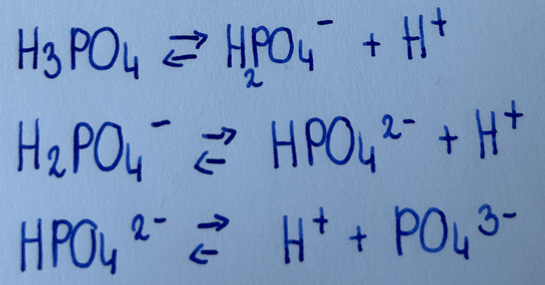 H₃PO₄ ⇄ H₂PO₄⁻ + H⁺
H₂PO₄⁻ ⇄ HPO₄²⁻ + H⁺
HPO₄²⁻ ⇄ H⁺ + PO₄³⁻